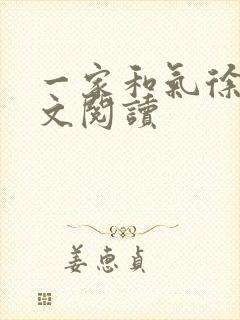 一家和氣徐
文閱讀
姜惠貞